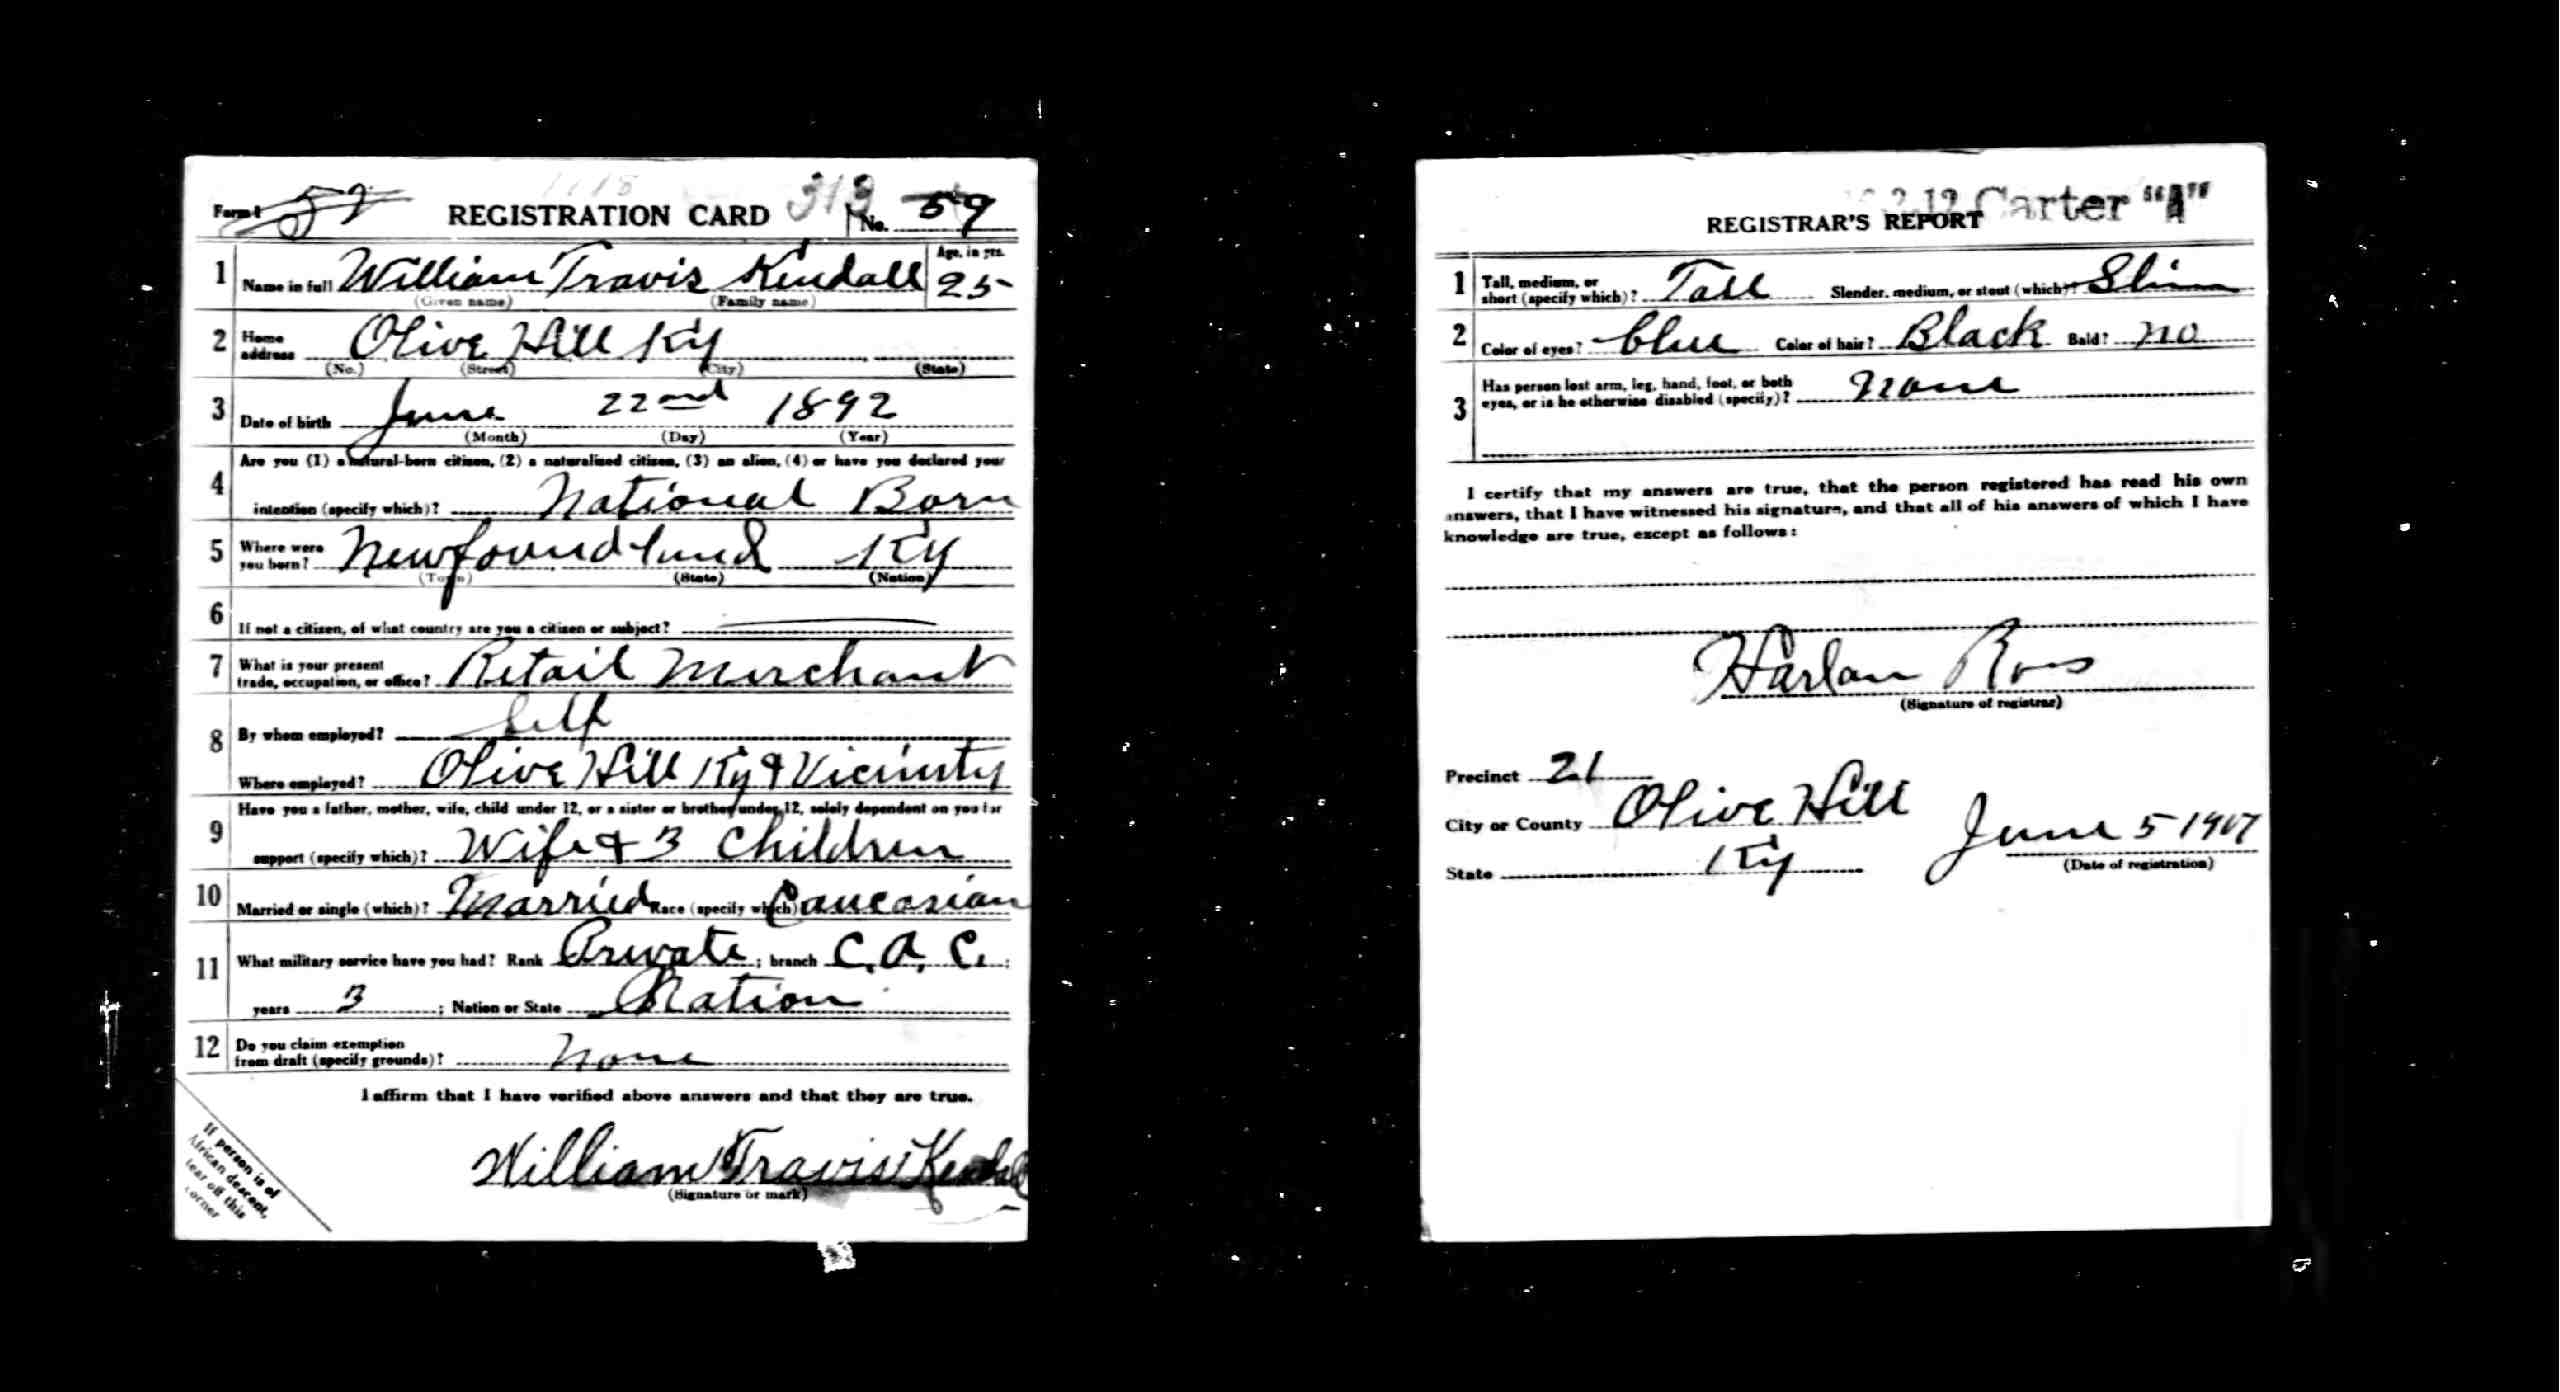 Form 1 52 REGISTRATION CARD 313 No. 59
1 Name in full William Travis Kendall Age, in yrs. 25
(Given name) (Family name)
2 Home address Olive Hill Ky
(No.) (Street) (City) (State)
3 Date of birth June 22nd 1892
(Month) (Day) (Year)
4 Are you (1) a natural-born citizen, (2) a naturalized citizen, (3) an alien, (4) or have you declared your
intention (specify which)? National Born
5 Where were you born? Newfoundland Ky
(Town) (State) (Nation)
6 If not a citizen, of what country are you a citizen or subject?
7 What is your present trade, occupation, or office? Retail Merchant
8 By whom employed? Self
Where employed? Olive Hill Ky & Vicinity
9 Have you a father, mother, wife, child under 12, or a sister or brother under 12, solely dependent on you for
support (specify which)? Wife & 3 Children
10 Married or single (which)? Married Race (specify which) Caucasian
11 What military service have you had? Rank Private ; branch C. A. C. ;
years 3 ; Nation or State Nation
12 Do you claim exemption from draft (specify grounds)? None
I affirm that I have verified above answers and that they are true.
William Travis Kendall
(Signature or mark)
If person is of
African descent,
tear off this
corner
Carter "A"
REGISTRAR'S REPORT
1 Tall, medium, or short (specify which)? Tall Slender, medium, or stout (which)? Slim
2 Color of eyes? blue Color of hair? Black Bald? no
3 Has person lost arm, leg, hand, foot, or both
eyes, or is he otherwise disabled (specify)? None
I certify that my answers are true, that the person registered has read his own
answers, that I have witnessed his signature, and that all of his answers of which I have
knowledge are true, except as follows:
Harlan Ross
(Signature of registrar)
Precinct 21
City or County Olive Hill June 5 1917
State Ky (Date of registration)